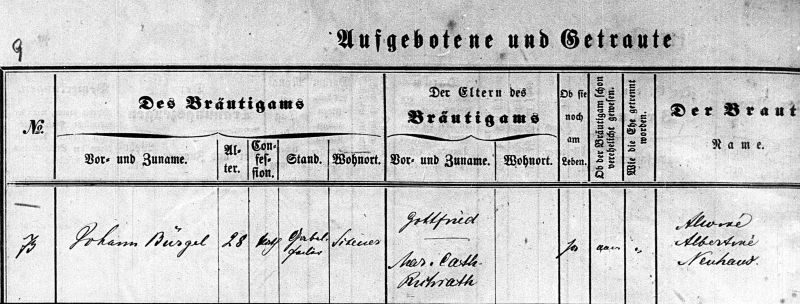 9
Aufgebotene und Getraute
No.
Des Bräutigams
Vor- und Zuname.
Al-
ter.
Con-
fes-
sion.
Stand.
Wohnort.
Der Eltern des
Bräutigams
Vor- und Zuname.
Wohnort.
Ob sie
noch
am
Leben.
Ob der Bräutigam schon
verehelicht gewesen.
Wie die Ehe getrennt
worden.
Der Braut
Name.
Johann Bürgel
28
kath
Gottfried
Mar. Cath.
Alwine
Albertine
Neuhaus.